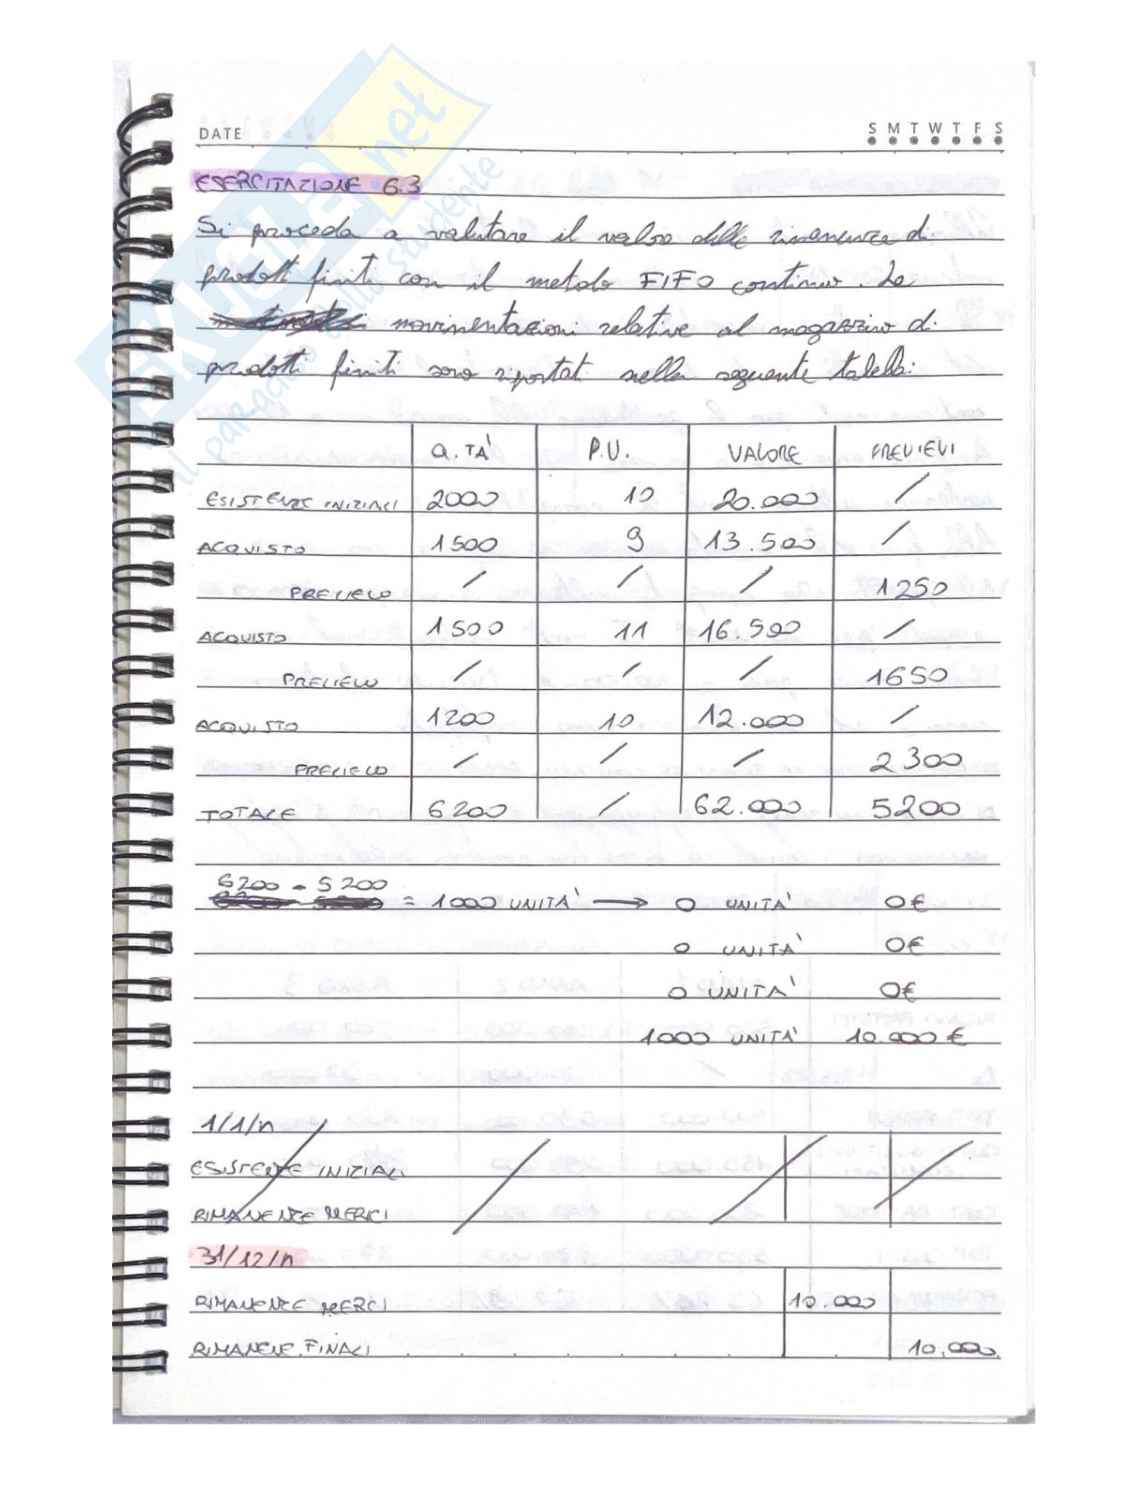 DATE
S M T W T F S
ESERCITAZIONE 6.3
Si proceda a valutare il valore delle rimanenze di
prodotti finiti con il metodo FIFO continuo. Le
movimentazioni relative al magazzino di
prodotti finiti sono riportati nella seguente tabella:
Q.TÀ P.U. VALORE PRELIEVI
ESISTENZE INIZIALI 2000 10 20.000 /
ACQUISTO 1500 9 13.500 /
PRELIEVO / / / 1250
ACQUISTO 1500 11 16.500 /
PRELIEVO / / / 1650
ACQUISTO 1200 10 12.000 /
PRELIEVO / / / 2300
TOTALE 6200 / 62.000 5200
6200 - 5200
= 1000 UNITÀ → 0 UNITÀ 0€
0 UNITÀ 0€
0 UNITÀ 0€
1000 UNITÀ 10.000 €
1/1/n
ESISTENZE INIZIALI
RIMANENZE MERCI
31/12/n
RIMANENZE MERCI 10.000
RIMANENZE FINALI 10.000
skuola.net
il paradiso dello studente